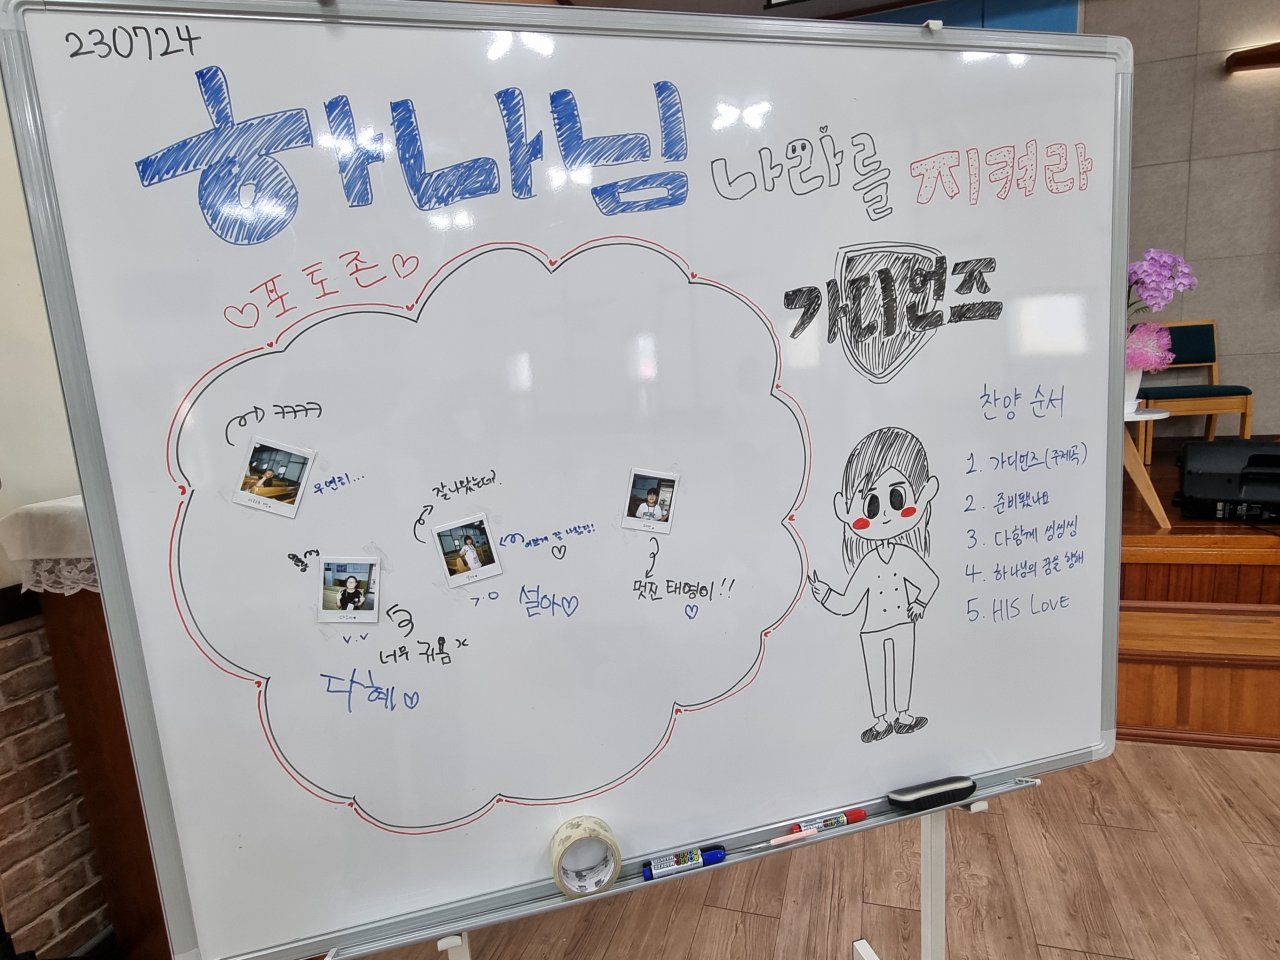 230724
하나님 나라를 지켜라
♡포토존♡
가디언즈
찬양 순서
1. 가디언즈(주제곡)
2. 준비됐나요
3. 다함께 씽씽씽
4. 하나님의 꿈을 향해
5. HIS LOVE
ㅋㅋㅋㅋ
우연히...
잘나왔는데?
설아♡
멋진 태영이!!
♡
너무 귀욤
다혜♡